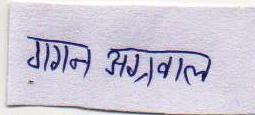 गगन अग्रवाल